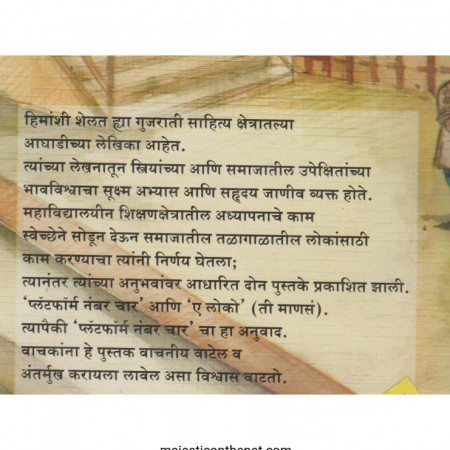 हिमांशी शेलत ह्या गुजराती साहित्य क्षेत्रातल्या
आघाडीच्या लेखिका आहेत.
त्यांच्या लेखनातून स्त्रियांच्या आणि समाजातील उपेक्षितांच्या
भावविश्वाचा सूक्ष्म अभ्यास आणि सहृदय जाणीव व्यक्त होते.
महाविद्यालयीन शिक्षणक्षेत्रातील अध्यापनाचे काम
स्वेच्छेने सोडून देऊन समाजातील तळागाळातील लोकांसाठी
काम करण्याचा त्यांनी निर्णय घेतला;
त्यानंतर त्यांच्या अनुभवावर आधारित दोन पुस्तके प्रकाशित झाली.
‘प्लॅटफॉर्म नंबर चार’ आणि ‘ए लोको’ (ती माणसं).
त्यापैकी ‘प्लॅटफॉर्म नंबर चार’ चा हा अनुवाद.
वाचकांना हे पुस्तक वाचनीय वाटेल व
अंतर्मुख करायला लावेल असा विश्वास वाटतो.